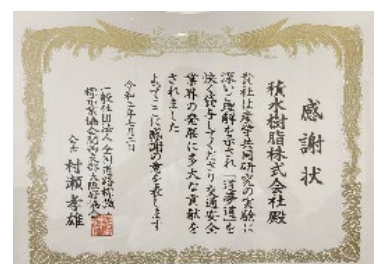 感謝状
積水樹脂株式会社殿
貴社は産学共同研究の実験に
深いご理解を示され「道夢道」を
快く貸与してくださり交通安全
業界の発展に多大な貢献を
されました
よってここに感謝の意を表します
令和三年七月二日
一般社団法人全国道路標識・
標示業協会関西支部大阪府協会
会長 村瀬孝雄